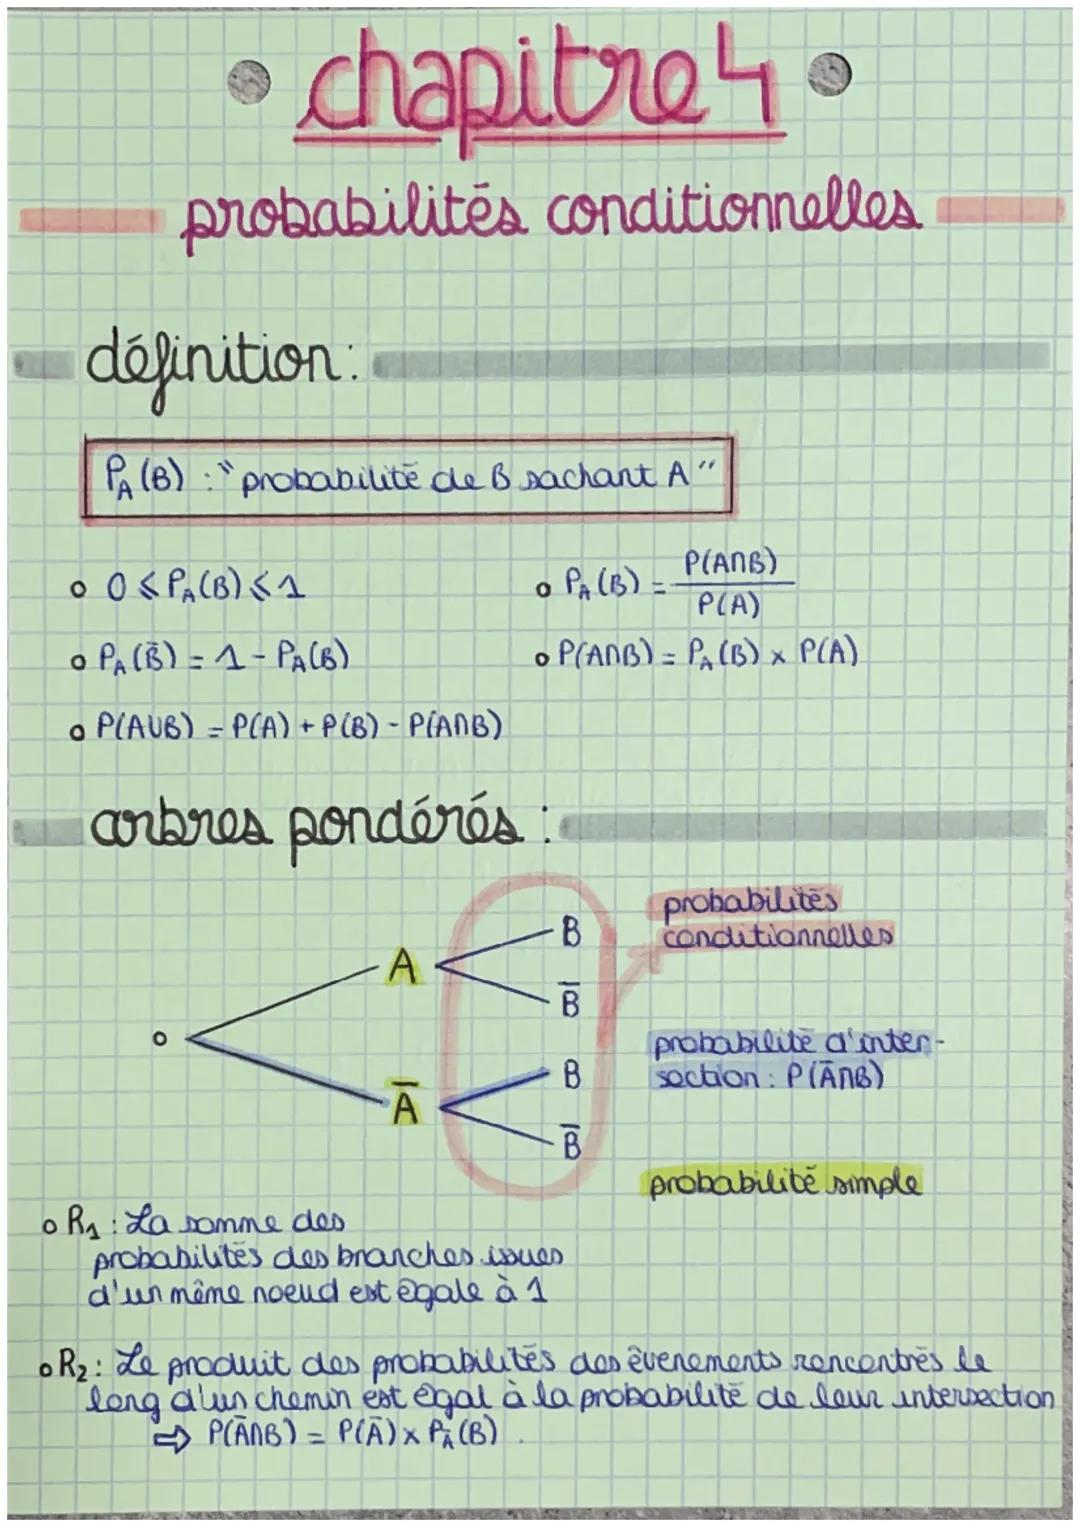 chapitre 4
probabilités conditionnelles
définition :
P_A(B) : "probabilité de B sachant A"
0 ⩽ P_A(B) ⩽ 1
P_A(B) = P(A∩B) / P(A)
P_A(B̄) = 1 - P_A(B)
P(A∩B) = P_A(B) × P(A)
P(A∪B) = P(A) + P(B) - P(A∩B)
arbres pondérés :
probabilités
conditionnelles
B
A
B̄
probabilité d'inter-
section : P(Ā∩B)
B
Ā
B̄
probabilité simple
R₁ : La somme des
probabilités des branches issues
d'un même noeud est égale à 1
R₂ : Le produit des probabilités des évenements rencontrés le
long d'un chemin est égal à la probabilité de leur intersection
⇒ P(Ā∩B) = P(Ā) × P_Ā(B).